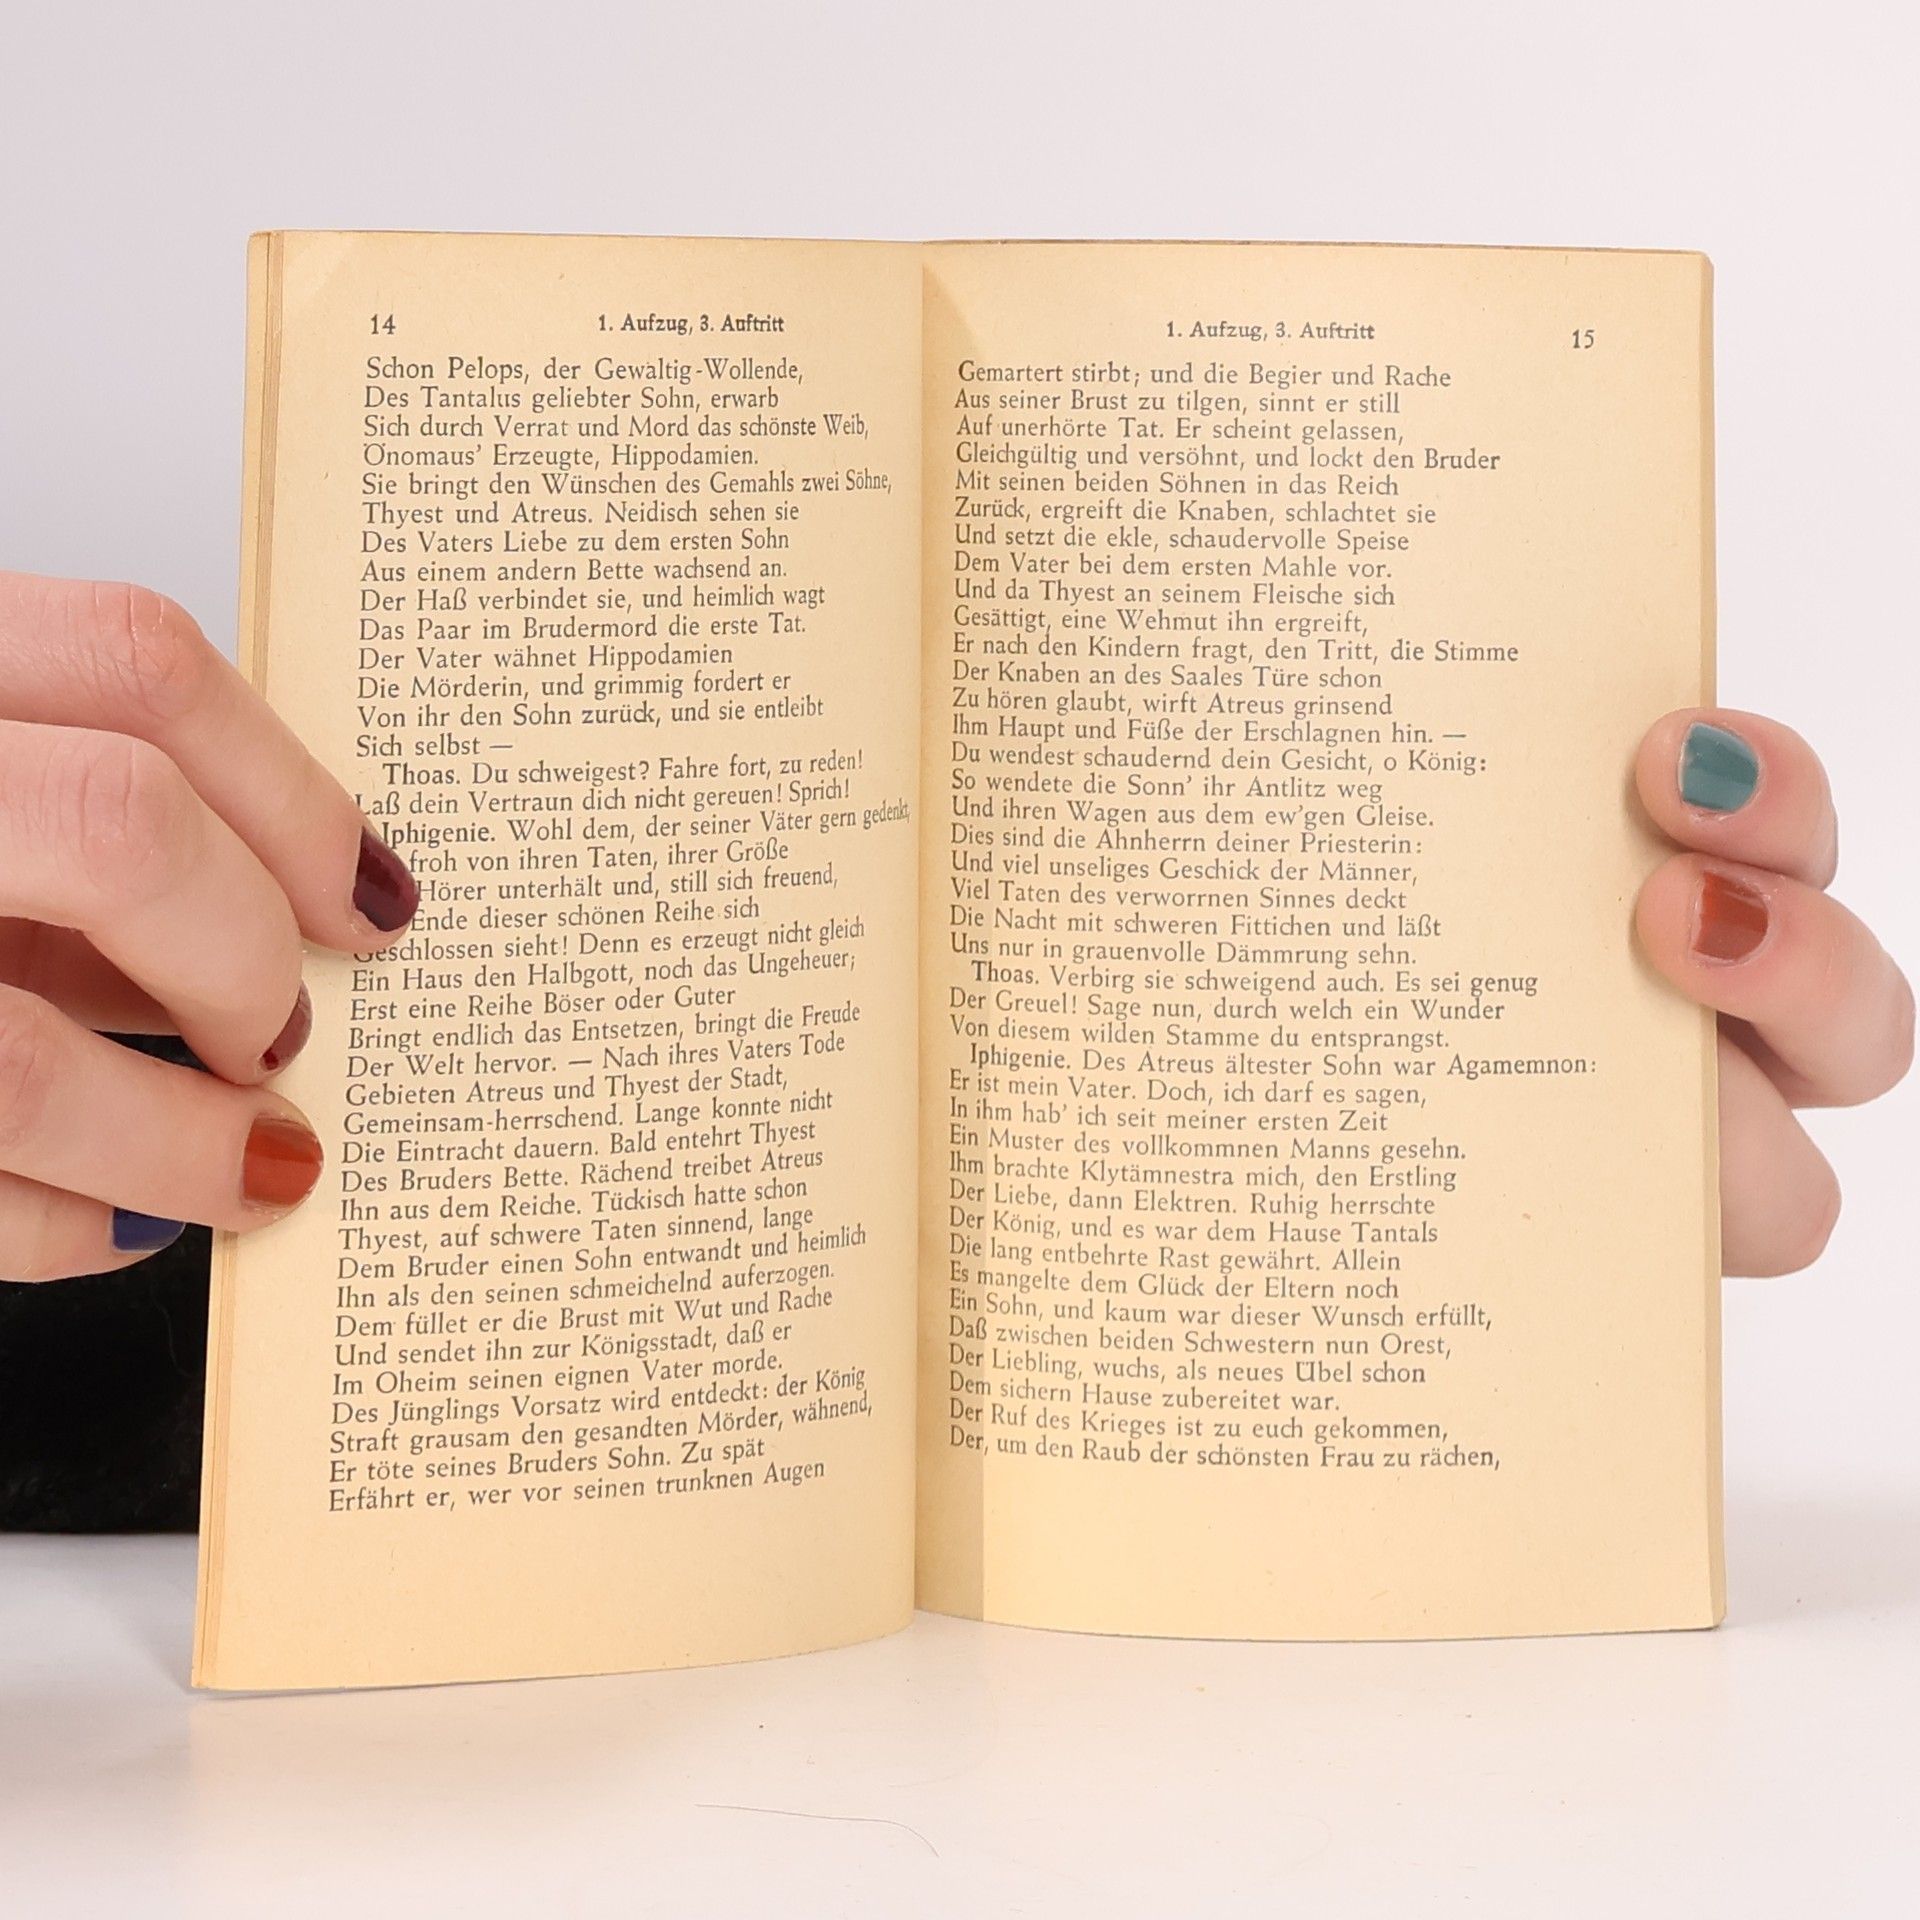 14
1. Aufzug, 3. Auftritt
Schon Pelops, der Gewaltig-Wollende,
Des Tantalus geliebter Sohn, erwarb
Sich durch Verrat und Mord das schönste Weib,
Önomaus' Erzeugte, Hippodamien.
Sie bringt den Wünschen des Gemahls zwei Söhne,
Thyest und Atreus. Neidisch sehen sie
Des Vaters Liebe zu dem ersten Sohn
Aus einem andern Bette wachsend an.
Der Haß verbindet sie, und heimlich wagt
Das Paar im Brudermord die erste Tat.
Der Vater wähnet Hippodamien
Die Mörderin, und grimmig fordert er
Von ihr den Sohn zurück, und sie entleibt
Sich selbst —
Thoas. Du schweigest? Fahre fort, zu reden!
Laß dein Vertraun dich nicht gereuen! Sprich!
Iphigenie. Wohl dem, der seiner Väter gern gedenkt,
froh von ihren Taten, ihrer Größe
Hörer unterhält und, still sich freuend,
Ende dieser schönen Reihe sich
Geschlossen sieht! Denn es erzeugt nicht gleich
Ein Haus den Halbgott, noch das Ungeheuer;
Erst eine Reihe Böser oder Guter
Bringt endlich das Entsetzen, bringt die Freude
Der Welt hervor. — Nach ihres Vaters Tode
Gebieten Atreus und Thyest der Stadt,
Gemeinsam-herrschend. Lange konnte nicht
Die Eintracht dauern. Bald entehrt Thyest
Des Bruders Bette. Rächend treibet Atreus
Ihn aus dem Reiche. Tückisch hatte schon
Thyest, auf schwere Taten sinnend, lange
Dem Bruder einen Sohn entwandt und heimlich
Ihn als den seinen schmeichelnd auferzogen.
Dem füllet er die Brust mit Wut und Rache
Und sendet ihn zur Königsstadt, daß er
Im Oheim seinen eignen Vater morde.
Des Jünglings Vorsatz wird entdeckt: der König
Straft grausam den gesandten Mörder, wähnend,
Er töte seines Bruders Sohn. Zu spät
Erfährt er, wer vor seinen trunknen Augen
1. Aufzug, 3. Auftritt
15
Gemartert stirbt; und die Begier und Rache
Aus seiner Brust zu tilgen, sinnt er still
Auf unerhörte Tat. Er scheint gelassen,
Gleichgültig und versöhnt, und lockt den Bruder
Mit seinen beiden Söhnen in das Reich
Zurück, ergreift die Knaben, schlachtet sie
Und setzt die ekle, schaudervolle Speise
Dem Vater bei dem ersten Mahle vor.
Und da Thyest an seinem Fleische sich
Gesättigt, eine Wehmut ihn ergreift,
Er nach den Kindern fragt, den Tritt, die Stimme
Der Knaben an des Saales Türe schon
Zu hören glaubt, wirft Atreus grinsend
Ihm Haupt und Füße der Erschlagnen hin. —
Du wendest schaudernd dein Gesicht, o König:
So wendete die Sonn' ihr Antlitz weg
Und ihren Wagen aus dem ew'gen Gleise.
Dies sind die Ahnherrn deiner Priesterin:
Und viel unseliges Geschick der Männer,
Viel Taten des verworrnen Sinnes deckt
Die Nacht mit schweren Fittichen und läßt
Uns nur in grauenvolle Dämmrung sehn.
Thoas. Verbirg sie schweigend auch. Es sei genug
Der Greuel! Sage nun, durch welch ein Wunder
Von diesem wilden Stamme du entsprangst.
Iphigenie. Des Atreus ältester Sohn war Agamemnon:
Er ist mein Vater. Doch, ich darf es sagen,
In ihm hab' ich seit meiner ersten Zeit
Ein Muster des vollkommnen Manns gesehn.
Ihm brachte Klytämnestra mich, den Erstling
Der Liebe, dann Elektren. Ruhig herrschte
Der König, und es war dem Hause Tantals
Die lang entbehrte Rast gewährt. Allein
Es mangelte dem Glück der Eltern noch
Ein Sohn, und kaum war dieser Wunsch erfüllt,
Daß zwischen beiden Schwestern nun Orest,
Der Liebling, wuchs, als neues Übel schon
Dem sichern Hause zubereitet war.
Der Ruf des Krieges ist zu euch gekommen,
Der, um den Raub der schönsten Frau zu rächen,